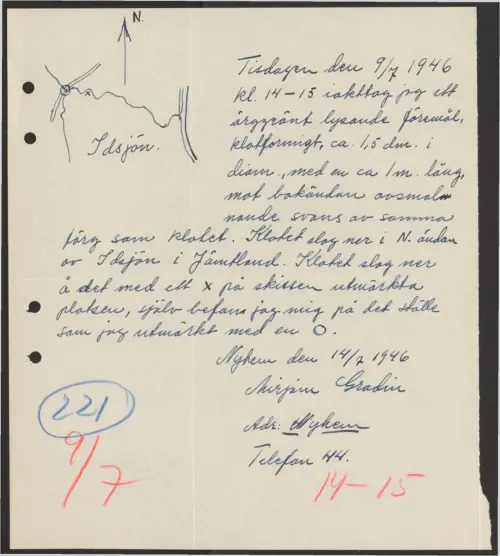 N.
Idsjön.
Tisdagen den 9/7 1946
kl. 14-15 iakttog jag ett
ärggrönt lysande föremål,
klotformigt, ca. 1,5 dm. i
diam., med en ca 1 m. lång,
mot bakändan avsmal-
nande svans av samma
färg som klotet. Klotet slog ner i N. ändan
av Idsjön i Jämtland. Klotet slog ner
å det med ett x på skissen utmärkta
platsen, själv befann jag mig på det ställe
som jag utmärkt med en O.
Nyhem den 14/7 1946
Mirjam Gradin
Adr: Nyhem
Telefon 44.
221
9/7
14-15